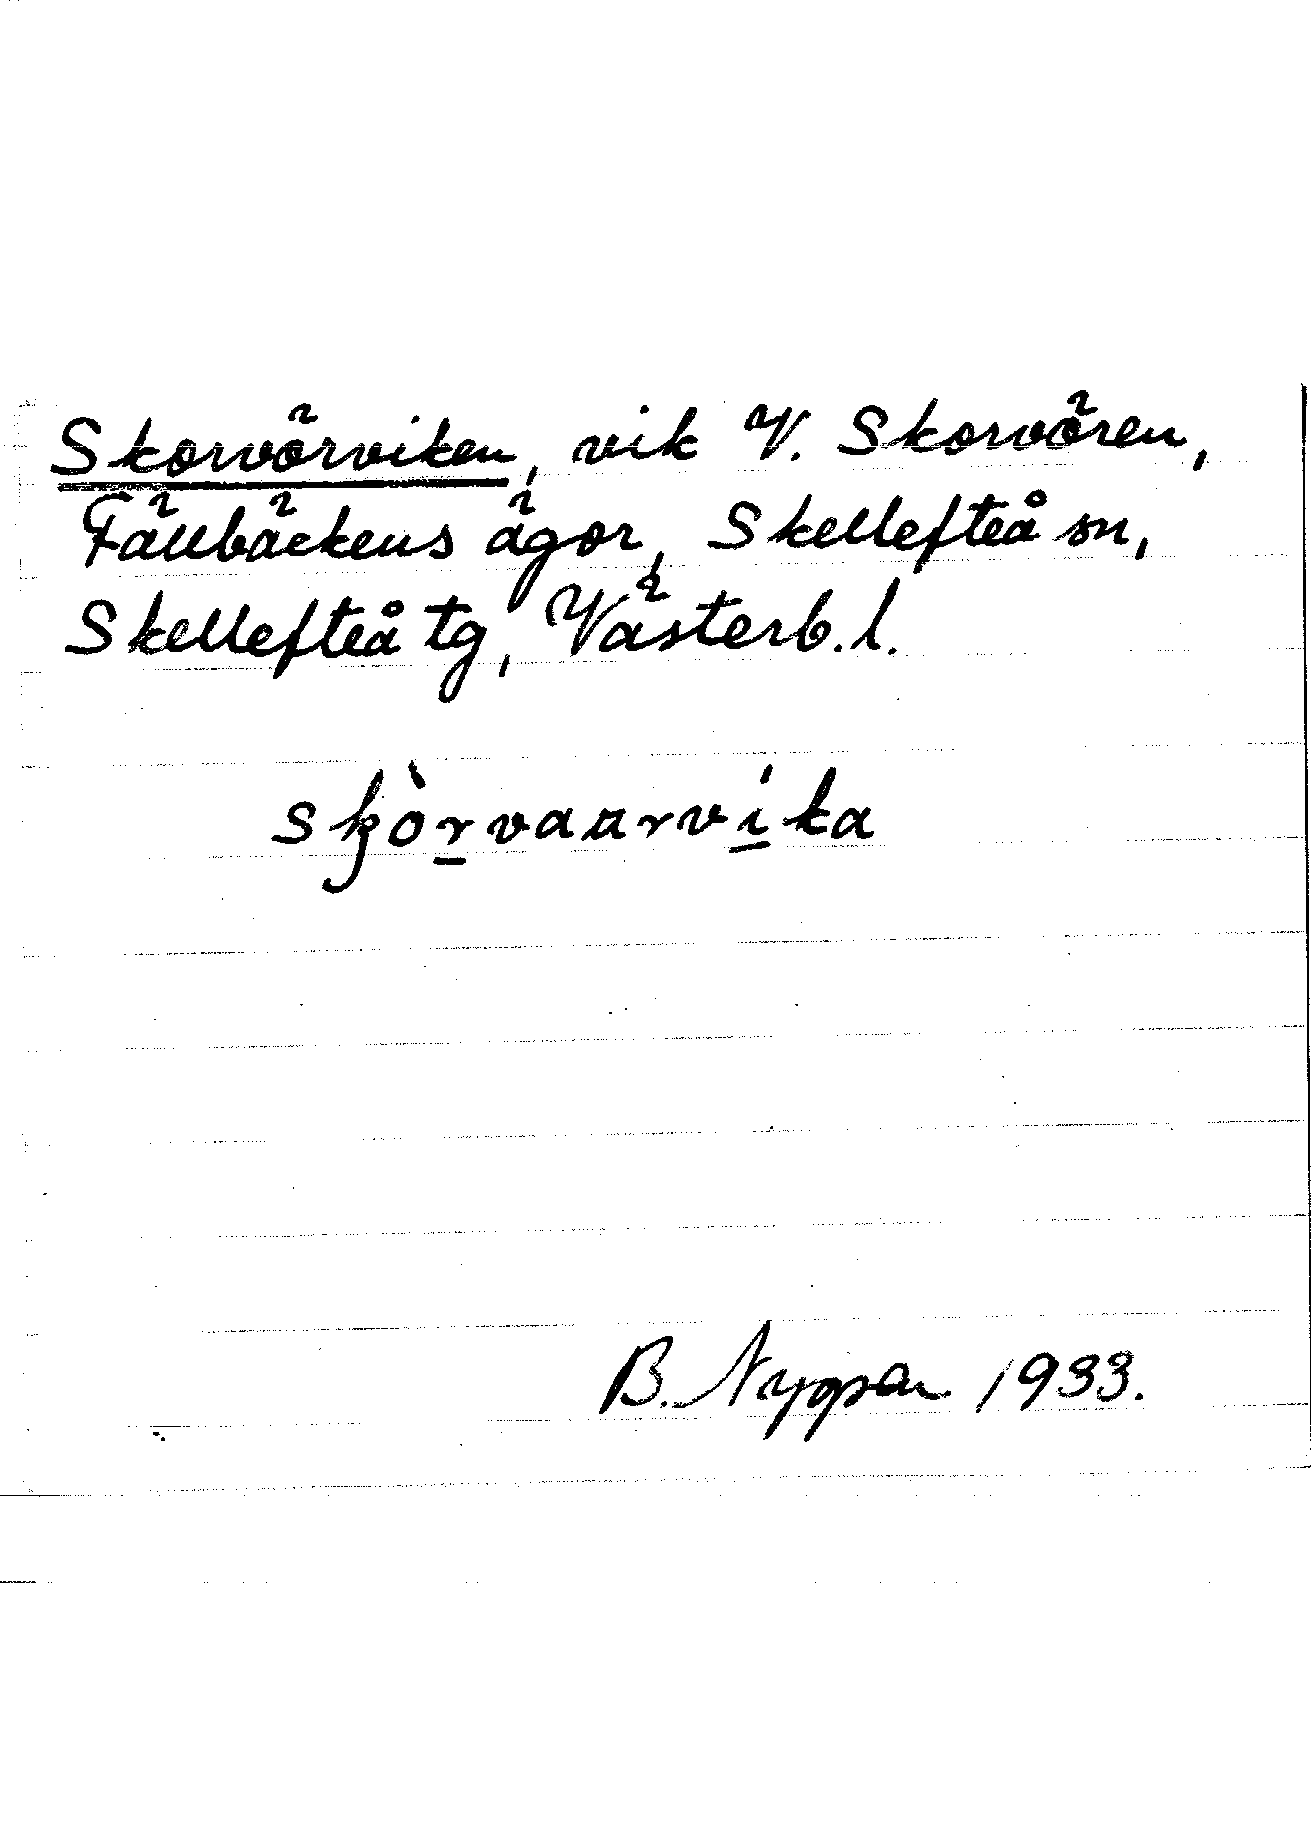 Skorvörviken, vik V. Skorvören,
Fällbäckens ägor, Skellefteå sn,
Skellefteå tg, Västerb. l.
skòrvaarvíka
B. 1933.